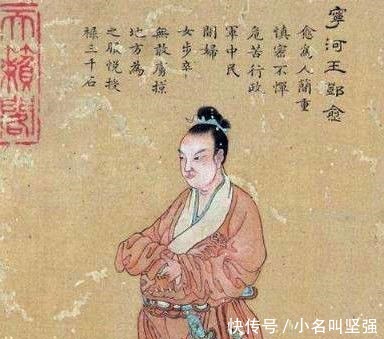 寧河王鄧愈
愈為人簡重
慎密不憚
危苦行政
軍中民
間婦
女步卒
無敢虜掠
地方為
之服悅授
祿三千石
天籟閣
快传号 / 小名叫坚强